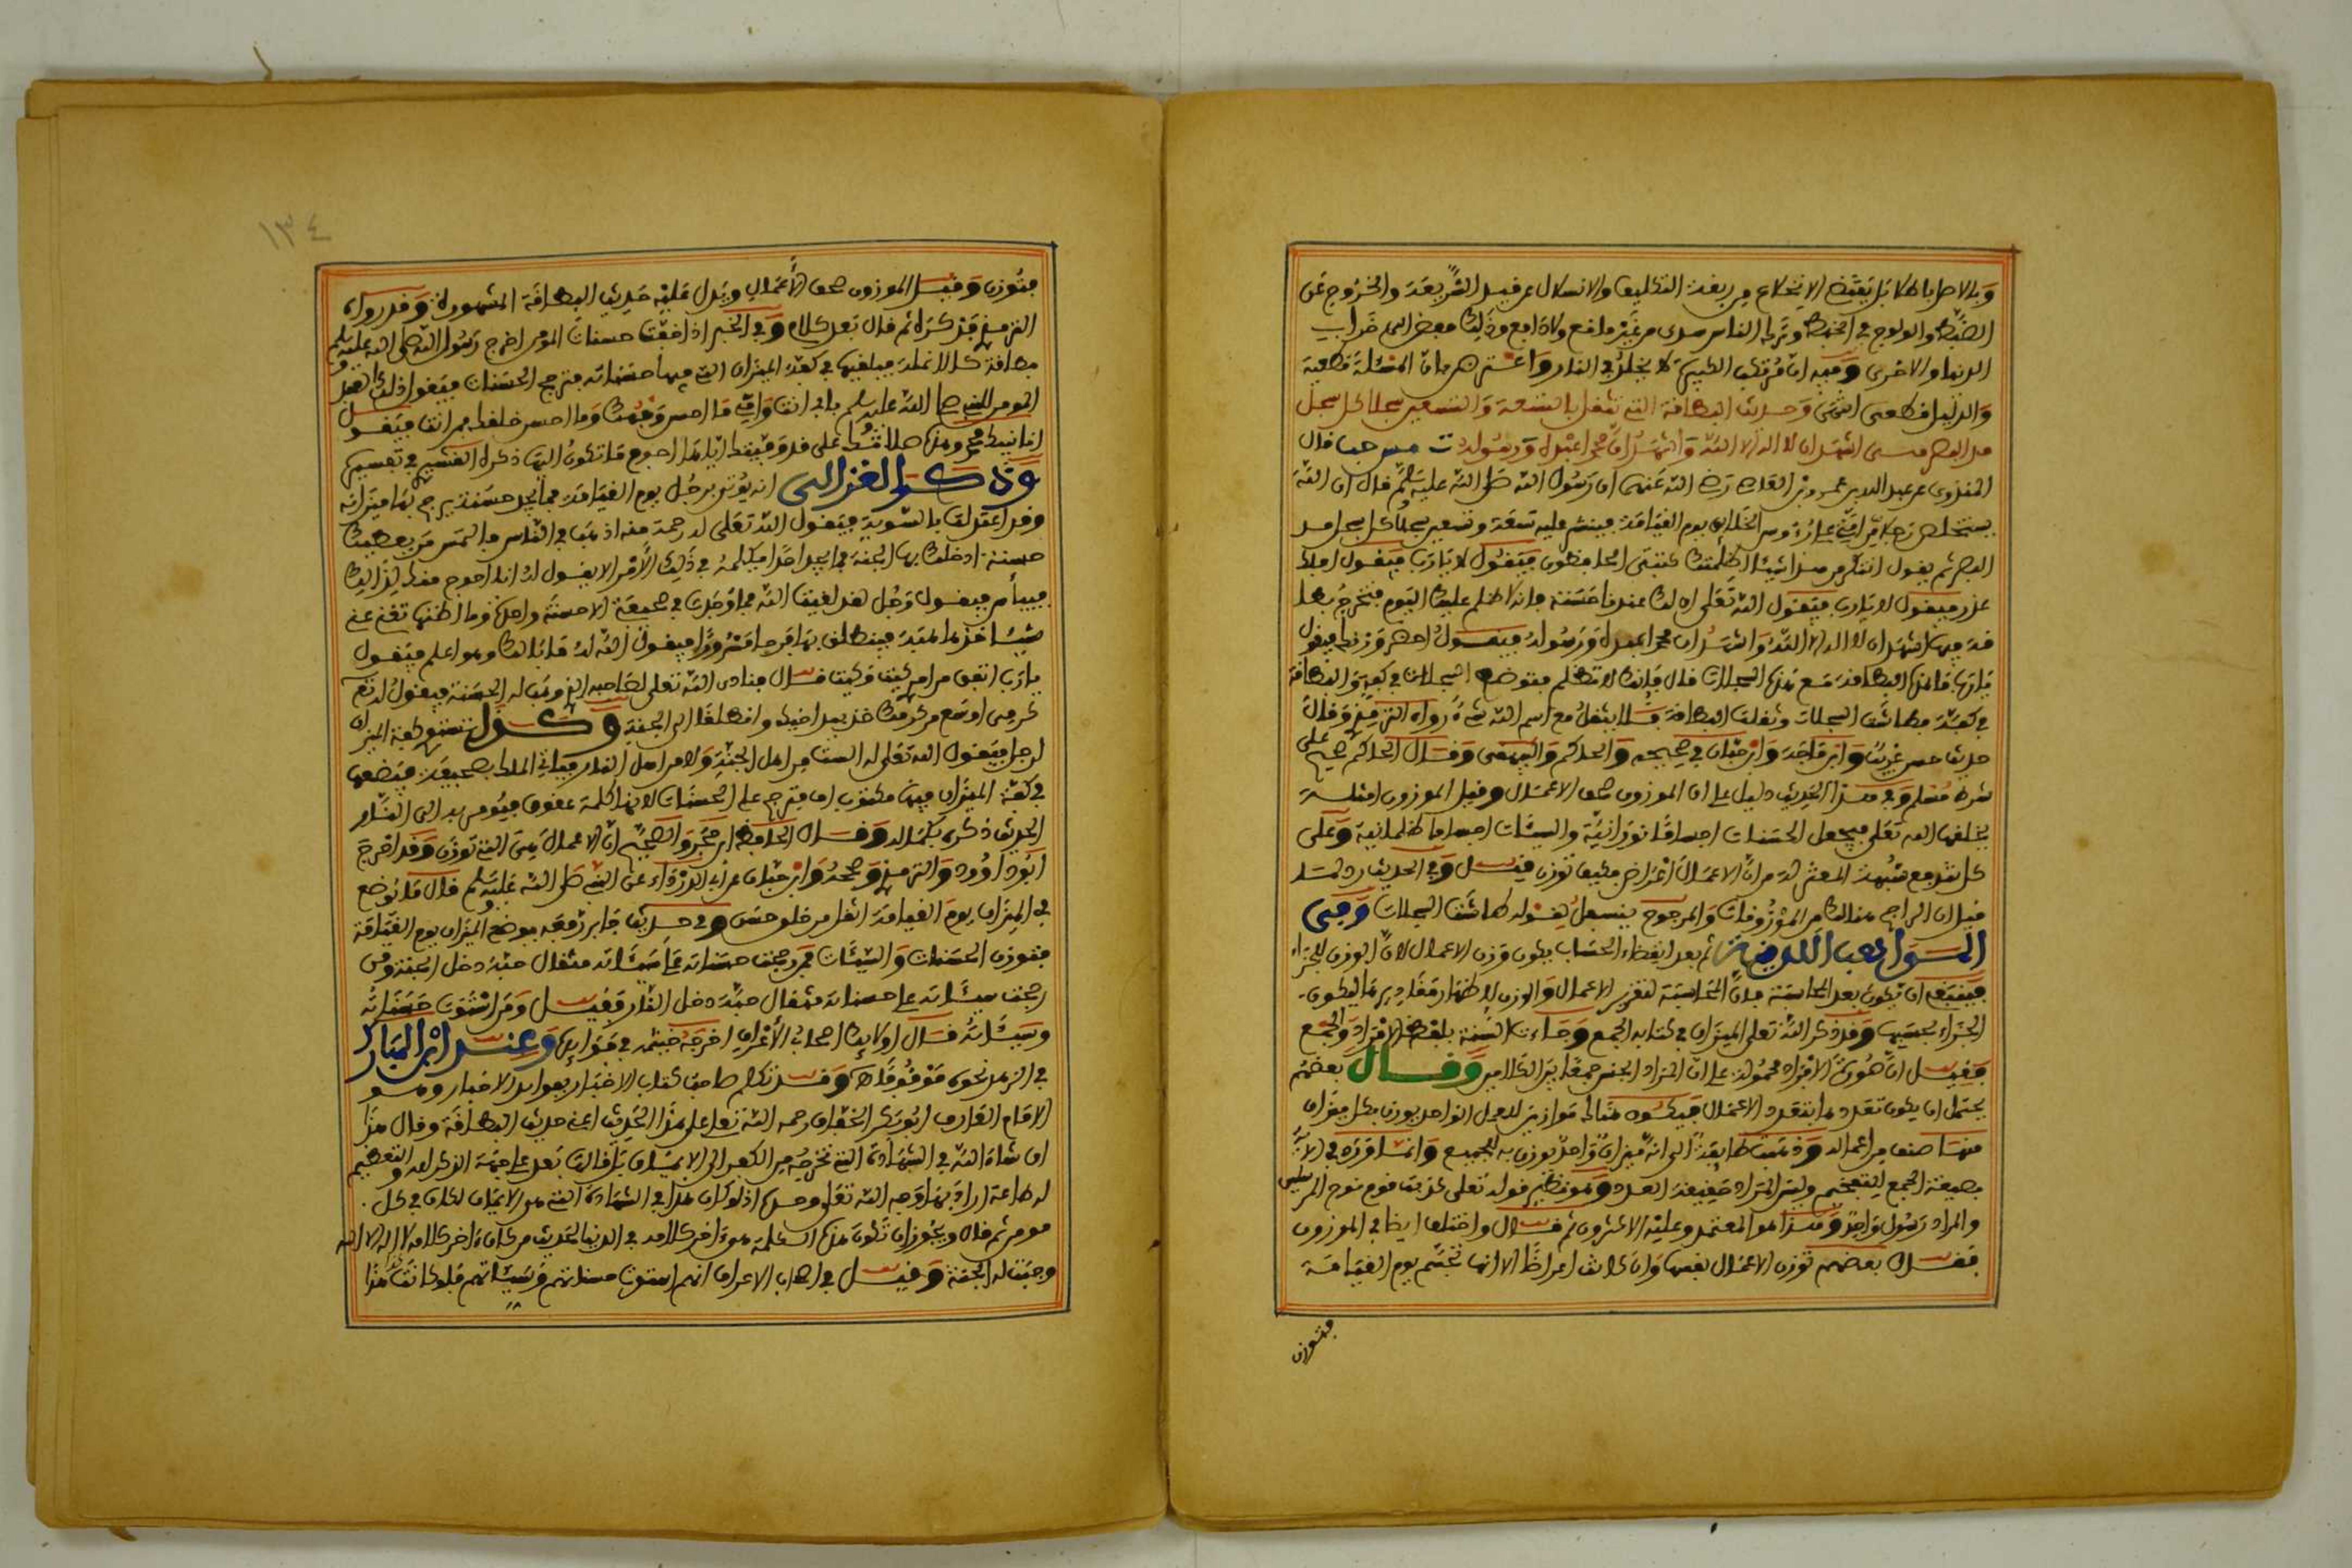 الضبط والولوج في الخبط وترك الناس سدى من غير مانع ولا دافع وذلك مفض الى خراب
الدنيا والاخرى وفيه ان مرتكب الكبيرة لا يخلد في النار واعترض بان المسئلة قطعية
مد البصر اشهد ان لا اله الا الله واشهد ان محمدا عبده ورسوله قال
عن عبد الله بن عمرو بن العاص رضي الله عنهما ان رسول الله صلى الله عليه وسلم قال ان الله
يستخلص رجلا من امتي على رءوس الخلائق يوم القيامة فينشر عليه تسعة وتسعين سجلا كل سجل مد
البصر ثم يقول اتنكر من هذا شيئا اظلمتك كتبتي الحافظون فيقول لا يا رب فيقول افلك
عذر فيقول لا يا رب فيقول الله تعلى ان لك عندنا حسنة فانه لا ظلم عليك اليوم فتخرج بطا
قة فيها اشهد ان لا اله الا الله واشهد ان محمدا عبده ورسوله فيقول احضر وزنك فيقول
يا رب ما هذه البطاقة مع هذه السجلات قال فانك لا تظلم فتوضع السجلات في كفة والبطاقة
في كفة فطاشت السجلات وثقلت البطاقة فلا يثقل مع اسم الله شيء رواه الترمذي وقال
حديث حسن غريب وابن ماجه وابن حبان في صحيحه والحاكم والبيهقي وقال الحاكم صحيح على
شرط مسلم وفي هذا الحديث دليل على ان الموزون صحف الاعمال وقيل الموزون امثلة
يخلقها الله تعلى فيجعل الحسنات اجساما نورانية والسيئات اجساما ظلمانية وعلى
كل تندفع شبهة المعتزلة من ان الاعمال اعراض فكيف توزن
ثم بعد انقضاء الحساب يكون وزن الاعمال لان الوزن للجزاء
فينبغي ان يكون بعد المحاسبة فان المحاسبة لتقرير الاعمال والوزن لاظهار مقاديرها ليكون
الجزاء بحسبها وقد ذكر الله تعلى الميزان في كتابه بالجمع وجاءت السنة بلفظ الافراد والجمع
فقيل ان صورة الافراد محمولة على ان المراد الجنس جمعا بين الكلامين وقال بعضهم
يحتمل ان يكون تعددها بتعدد الاعمال فيكون هناك موازين للعمل الواحد يوزن بكل ميزان
منها صنف من اعماله وذهبت طايفة الى انه ميزان واحد يوزن به للجميع وانما ورد في الاية
بصيغة الجمع للتفخيم وليس المراد حقيقة العدد وهو نظير قوله تعلى كذبت قوم نوح المرسلين
والمراد رسول واحد وهذا هو المعتمد وعليه الاكثرون ثم قال واختلف ايضا في الموزون
فقال بعضهم توزن الاعمال نفسها وان كانت اعراضا الا انها تجسم يوم القيامة
فتوزن
١٣٤
فتوزن وقيل الموزون صحف الاعمال ويدل عليه حديث البطاقة المشهورة وقد رواه
الترمذي فذكره ثم قال بعد كلام وفي الخبر اذا خفت حسنات المومن اخرج رسول الله صلى الله عليه وسلم
بطاقة كالانملة فيلقيها في كفة الميزان التي فيها حسناته فترجح الحسنات فيقول ذلك العبد
المومن للنبي صلى الله عليه وسلم بابي انت وامي ما احسن وجهك وما احسن خلقك فمن انت فيقول
انا نبيك محمد وهذه صلاتك علي قد وفيتك اياها احوج ما تكون اليها ذكره القشيري في تفسيره
وذكر الغزالي انه يؤتى برجل يوم القيامة فما يجد حسنة يرجح بها ميزانه
وقد اعتدلت بالسوية فيقول الله تعلى له رحمة منه اذهب في الناس فالتمس من يعطيك
حسنة ادخلك بها الجنة فما يجد احدا يكلمه في ذلك الامر الا يقول له انا احوج منك لذلك
فييأس فيقول رجل لقد لقيت الله فما وجدت في صحيفتي الا حسنة واحدة وما اظنها تغني عني
شيئا خذها هبة فينطلق بها فرحا مسرورا فيقول الله له ما بالك وهو اعلم فيقول
يا رب اتفق من امري كيت وكيت قال فينادي الله تعلى لصاحبه الذي وهب له الحسنة فيقول له تعلى
كرمي اوسع من كرمك خذ بيد اخيك وانطلقا الى الجنة وكذا تستوي كفة الميزان
لرجل فيقول الله تعلى له لست من اهل الجنة ولا من اهل النار فياتي الملك بصحيفة فيضعها
في كفة الميزان فيها مكتوب اف فترجح على الحسنات لانها كلمة عقوق فيومر به الى النار
الحديث ذكره بكماله وقال الحافظ ابن حجر والصحيح ان الاعمال هي التي توزن وقد اخرج
ابو داوود والترمذي وصححه وابن حبان عن ابي الدرداء عن النبي صلى الله عليه وسلم قال ما يوضع
في الميزان يوم القيامة اثقل من خلق حسن وفي حديث جابر رفعه يوضع الميزان يوم القيامة
فتوزن الحسنات والسيئات فمن رجحت حسناته على سيئاته مثقال حبة دخل الجنة ومن
رجحت سيئاته على حسناته مثقال حبة دخل النار فقيل ومن استوت حسناته
وسيئاته قال اولئك اصحاب الاعراف اخرجه خيثمة في فوايده وعند ابن المبارك
في الزهد نحوه موقوفا وقد تكلم صاحب كتاب الاخبار بفوايد الاخبار وهو
الامام العارف ابو بكر رحمه الله تعلى على هذا الحديث اعني حديث البطاقة وقال هذا
لطاعة اراد بها وجه الله تعلى
مومن ثم قال ويجوز ان تكون هذه الكلمة هي اخر كلامه في الدنيا لحديث من كان اخر كلامه لا اله الا الله
وجبت له الجنة وقيل في اصحاب الاعراف انهم استوت حسناتهم وسيئاتهم